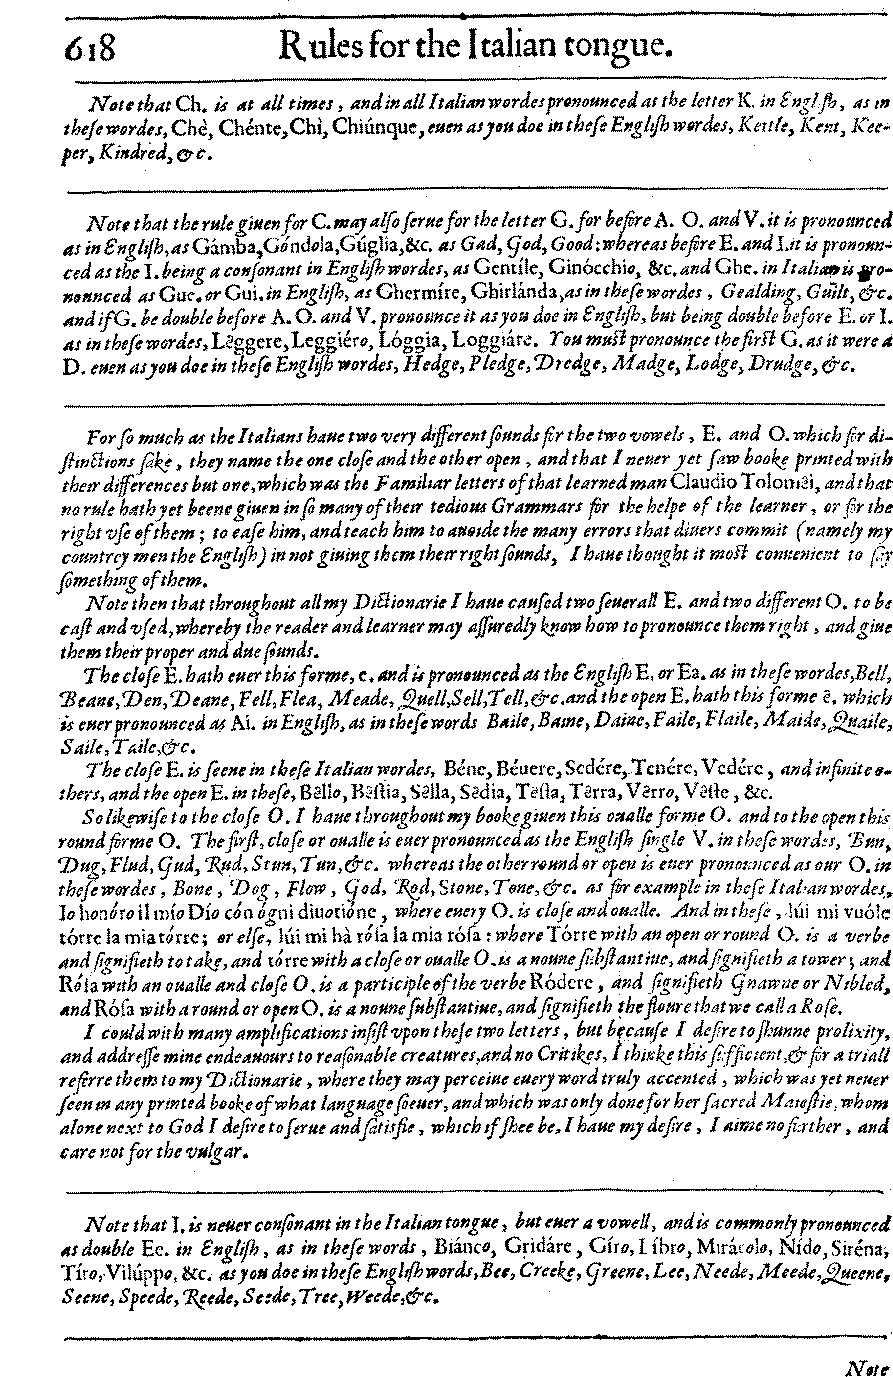 618 Rules for the Italian tongue.
Note that Ch. is at all times, and in all Italian wordes pronounced as the letter K. in Engliſh, as in
theſe wordes, Chè, Chénte, Chì, Chiúnque, euen as you doe in theſe Engliſh wordes, Kettle, Kent, Kee-
per, Kindred, &c.
Note that the rule giuen for C. may alſo ſerue for the letter G. for before A. O. and V. it is pronounced
as in Engliſh, as Gámba, Góndola, Gúglia, &c. as Gad, God, Good: whereas before E. and I. it is pronoun-
ced as the I. being a conſonant in Engliſh wordes, as Gentíle, Ginócchio, &c. and Ghe. in Italian is pro-
nounced as Gue. or Gui. in Engliſh, as Ghermíre, Ghirlánda, as in theſe wordes, Gealding, Guilt, &c.
and if G. be double before A. O. and V. pronounce it as you doe in Engliſh, but being double before E. or I.
as in theſe wordes, Lēggere, Leggiéro, Lóggia, Loggiáre. You muſt pronounce the firſt G. as it were a
D. euen as you doe in theſe Engliſh wordes, Hedge, Pledge, Dredge, Madge, Lodge, Drudge, &c.
For ſo much as the Italians haue two very different ſounds for the two vowels, E. and O. which for di-
ſtinctions ſake, they name the one cloſe and the other open, and that I neuer yet ſaw booke printed with
their differences but one, which was the Familiar letters of that learned man Claudio Tolomēi, and that
no rule hath yet beene giuen in ſo many of their tedious Grammars for the helpe of the learner, or for the
right vſe of them; to eaſe him, and teach him to auoide the many errors that diuers commit (namely my
countrey men the Engliſh) in not giuing them their right ſounds, I haue thought it moſt conuenient to ſay
ſomething of them.
Note then that throughout all my Dictionarie I haue cauſed two ſeuerall E. and two different O. to be
caſt and vſed, whereby the reader and learner may aſſuredly know how to pronounce them right, and giue
them their proper and due ſounds.
The cloſe E. hath euer this forme, e. and is pronounced as the Engliſh E. or Ea. as in theſe wordes, Bell,
Beane, Den, Deane, Fell, Flea, Meade, Quell, Sell, Tell, &c. and the open E. hath this forme ē. which
is euer pronounced as Ai. in Engliſh, as in theſe words Baile, Baine, Daine, Faile, Flaile, Maide, Quaile,
Saile, Taile, &c.
The cloſe E. is ſeene in theſe Italian wordes, Béne, Béuere, Sedére, Tenére, Vedére, and infinite o-
thers, and the open E. in theſe, Bēllo, Bēſtia, Sēlla, Sēdia, Tēſta, Tērra, Vērro, Vēſte, &c.
So likewiſe to the cloſe O. I haue throughout my booke giuen this oualle forme O. and to the open this
round forme O. The firſt, cloſe or oualle is euer pronounced as the Engliſh ſingle V. in theſe wordes, Bun,
Dug, Flud, Gud, Rud, Stun, Tun, &c. whereas the other round or open is euer pronounced as our O. in
theſe wordes, Bone, Dog, Flow, God, Rod, Stone, Tone, &c. as for example in theſe Italian wordes,
Io honóro il mío Dío cón ógni diuotióne, where euery O. is cloſe and oualle. And in theſe, lúi mi vuóle
tórre la mia tórre; or elſe, lúi mi hà róſa la mia róſa: where Tórre with an open or round O. is a verbe
and ſignifieth to take, and tórre with a cloſe or oualle O. is a noune ſubſtantiue, and ſignifieth a tower; and
Róſa with an oualle and cloſe O. is a participle of the verbe Ródere, and ſignifieth Gnawne or Nibled,
and Róſa with a round or open O. is a noune ſubſtantiue, and ſignifieth the floure that we call a Roſe.
I could with many amplifications inſiſt vpon theſe two letters, but becauſe I deſire to ſhunne prolixity,
and addreſſe mine endeauours to reaſonable creatures, and no Critikes, I thinke this ſufficient, & for a triall
referre them to my Dictionarie, where they may perceiue euery word truly accented, which was yet neuer
ſeen in any printed booke of what language ſoeuer, and which was only done for her ſacred Maieſtie, whom
alone next to God I deſire to ſerue and ſatisfie, which if ſhee be, I haue my deſire, I aime no further, and
care not for the vulgar.
Note that I. is neuer conſonant in the Italian tongue, but euer a vowell, and is commonly pronounced
as double Ee. in Engliſh, as in theſe words, Biánco, Gridáre, Gíro, Líbro, Mirácolo, Nído, Siréna,
Tíro, Vilúppo, &c. as you doe in theſe Engliſh words, Bee, Creeke, Greene, Lee, Neede, Meede, Queene,
Seene, Speede, Reede, Seede, Tree, Weede, &c.
Note